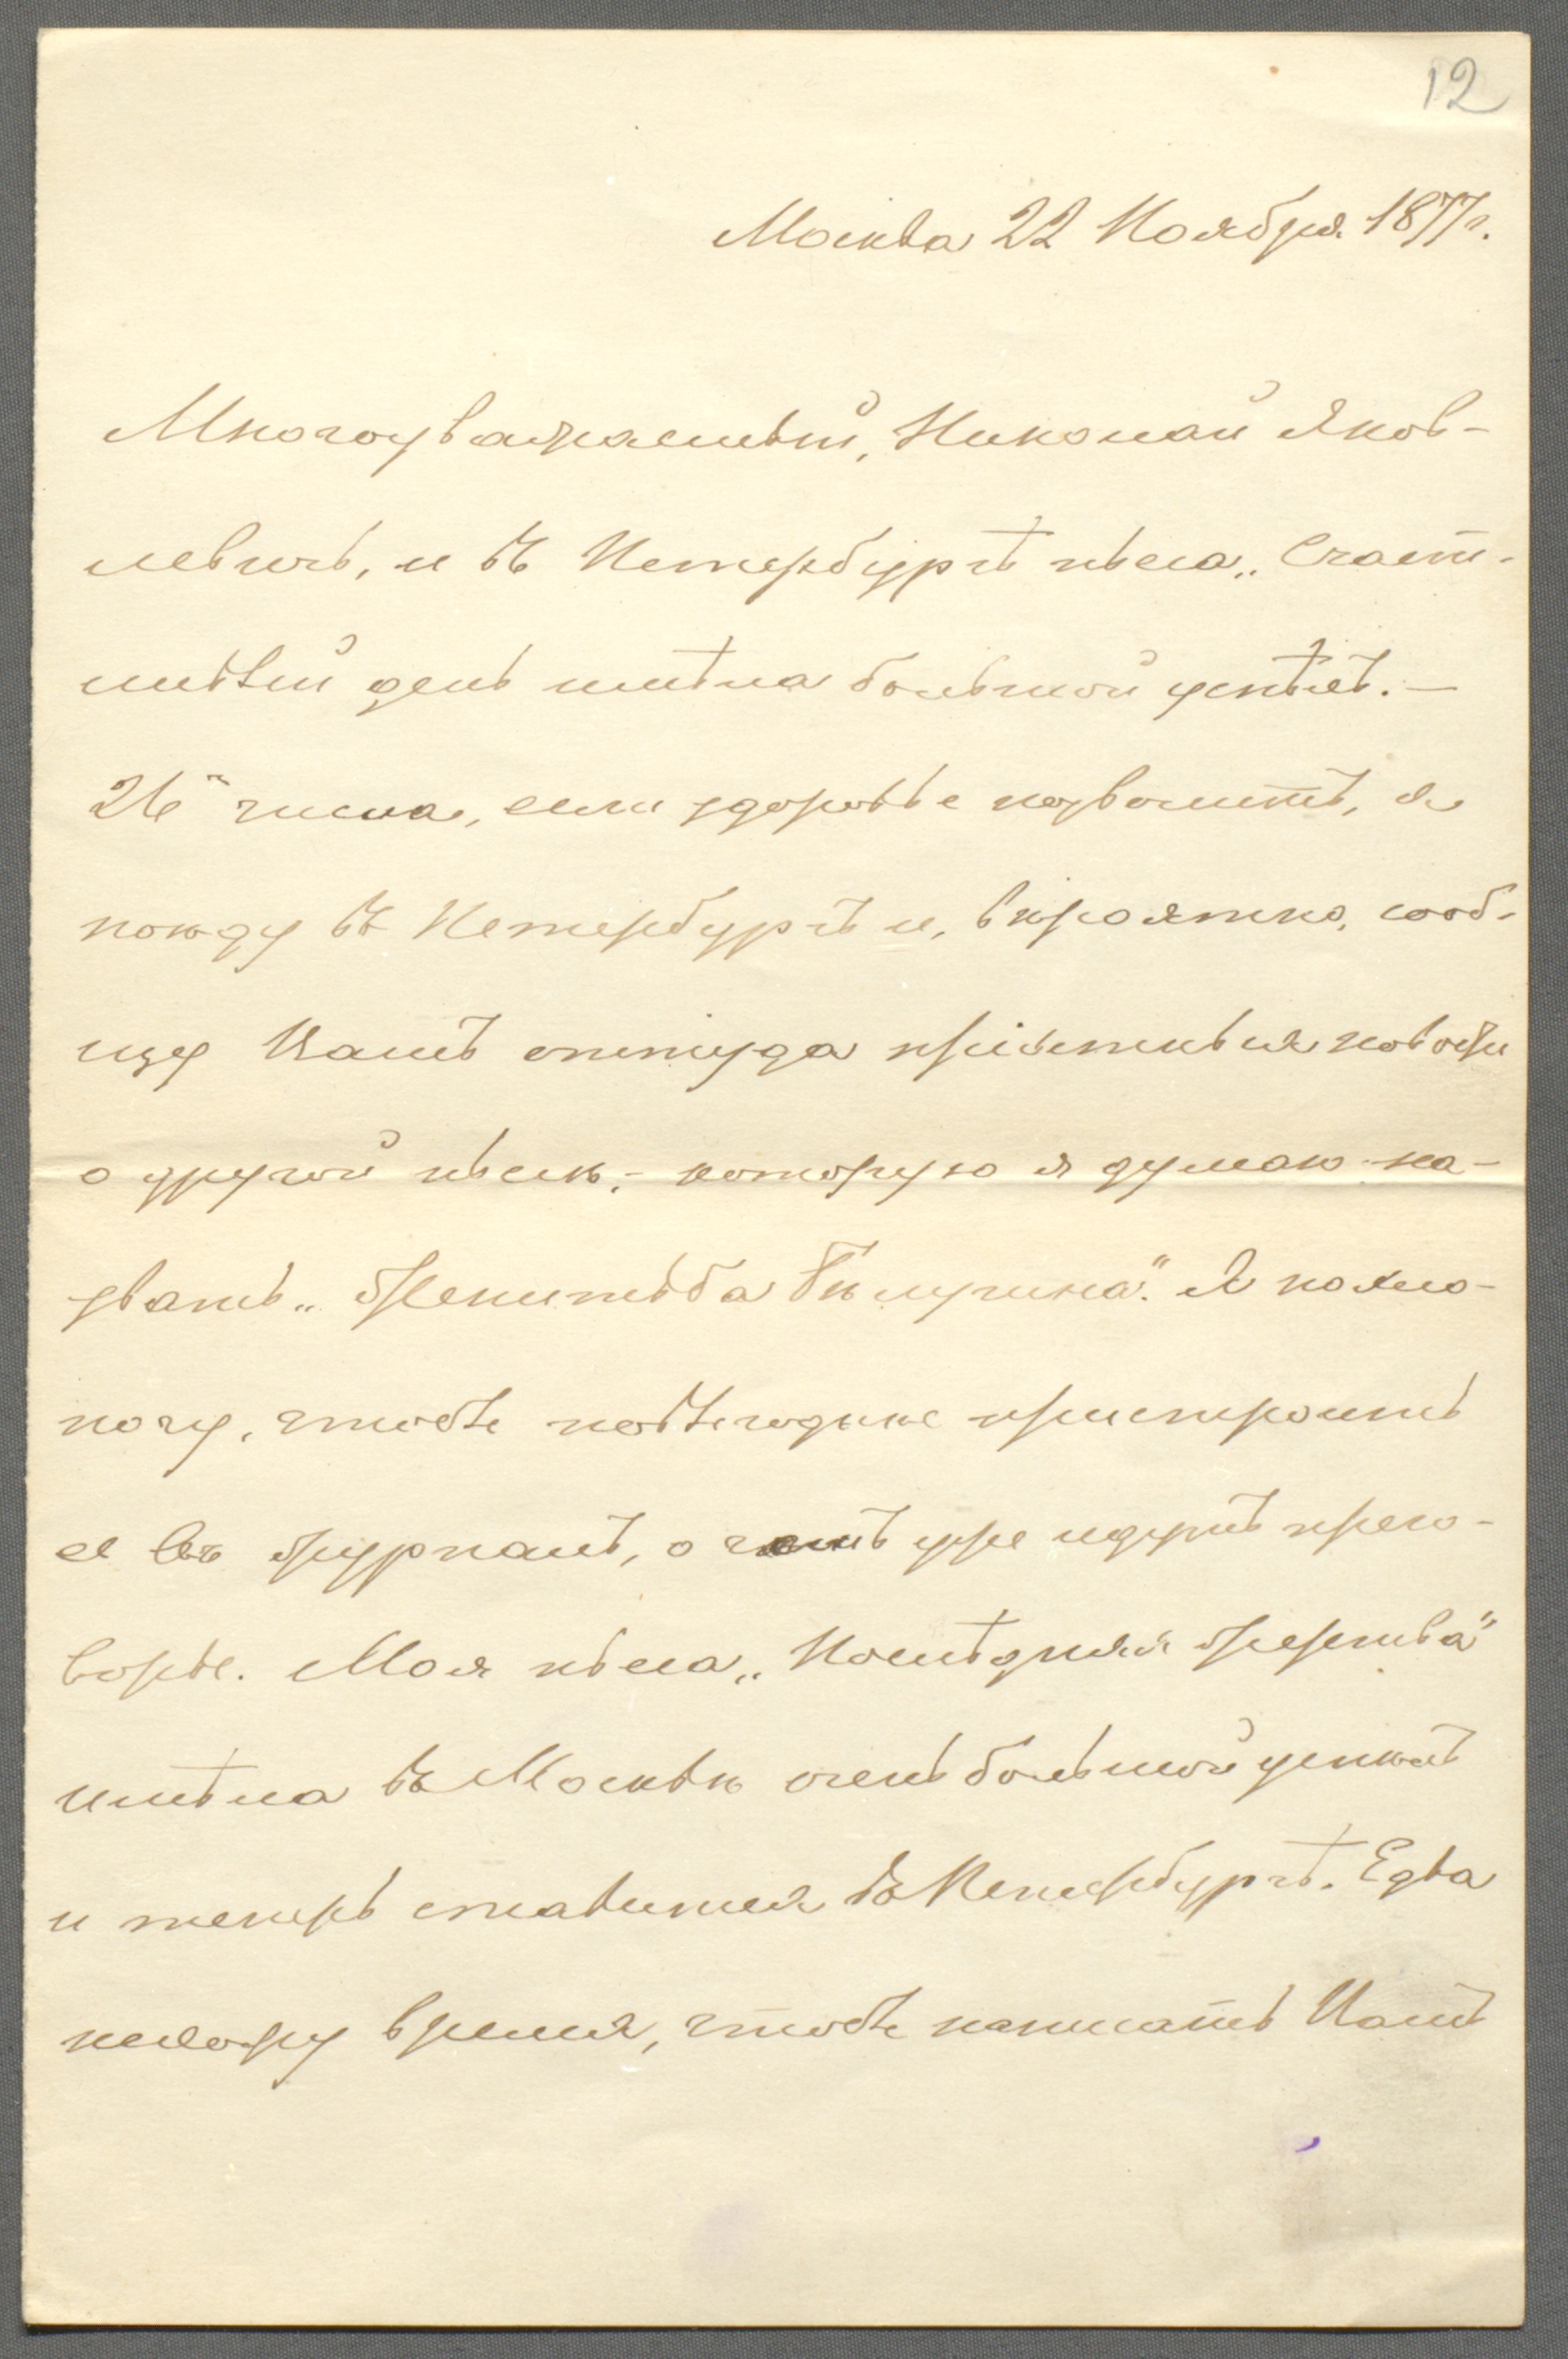 12
Москва 22 Ноября 1877 г.
Многоуважаемый, Николай Яков-
левичъ, и въ Петербургѣ пьеса „Счаст-
ливый день имѣла большой успѣхъ. —
26го числа, если здоровье позволитъ, я
поѣду въ Петербургъ и, вѣроятно, сооб-
щу Вамъ оттуда пріятныя новости
о другой пьесѣ, - которую я думаю на-
звать „Женитьба Бѣлугина". Я похло-
почу, чтобы повыгоднѣе пристроить
ее въ журналъ, о чемъ уже идутъ пере-
воры. Моя пьеса „Послѣдняя жертва"
имѣла въ Москвѣ очень большой успѣхъ
и теперь ставится въ Петербургѣ. Едва
нахожу время, чтобы написать Вамъ